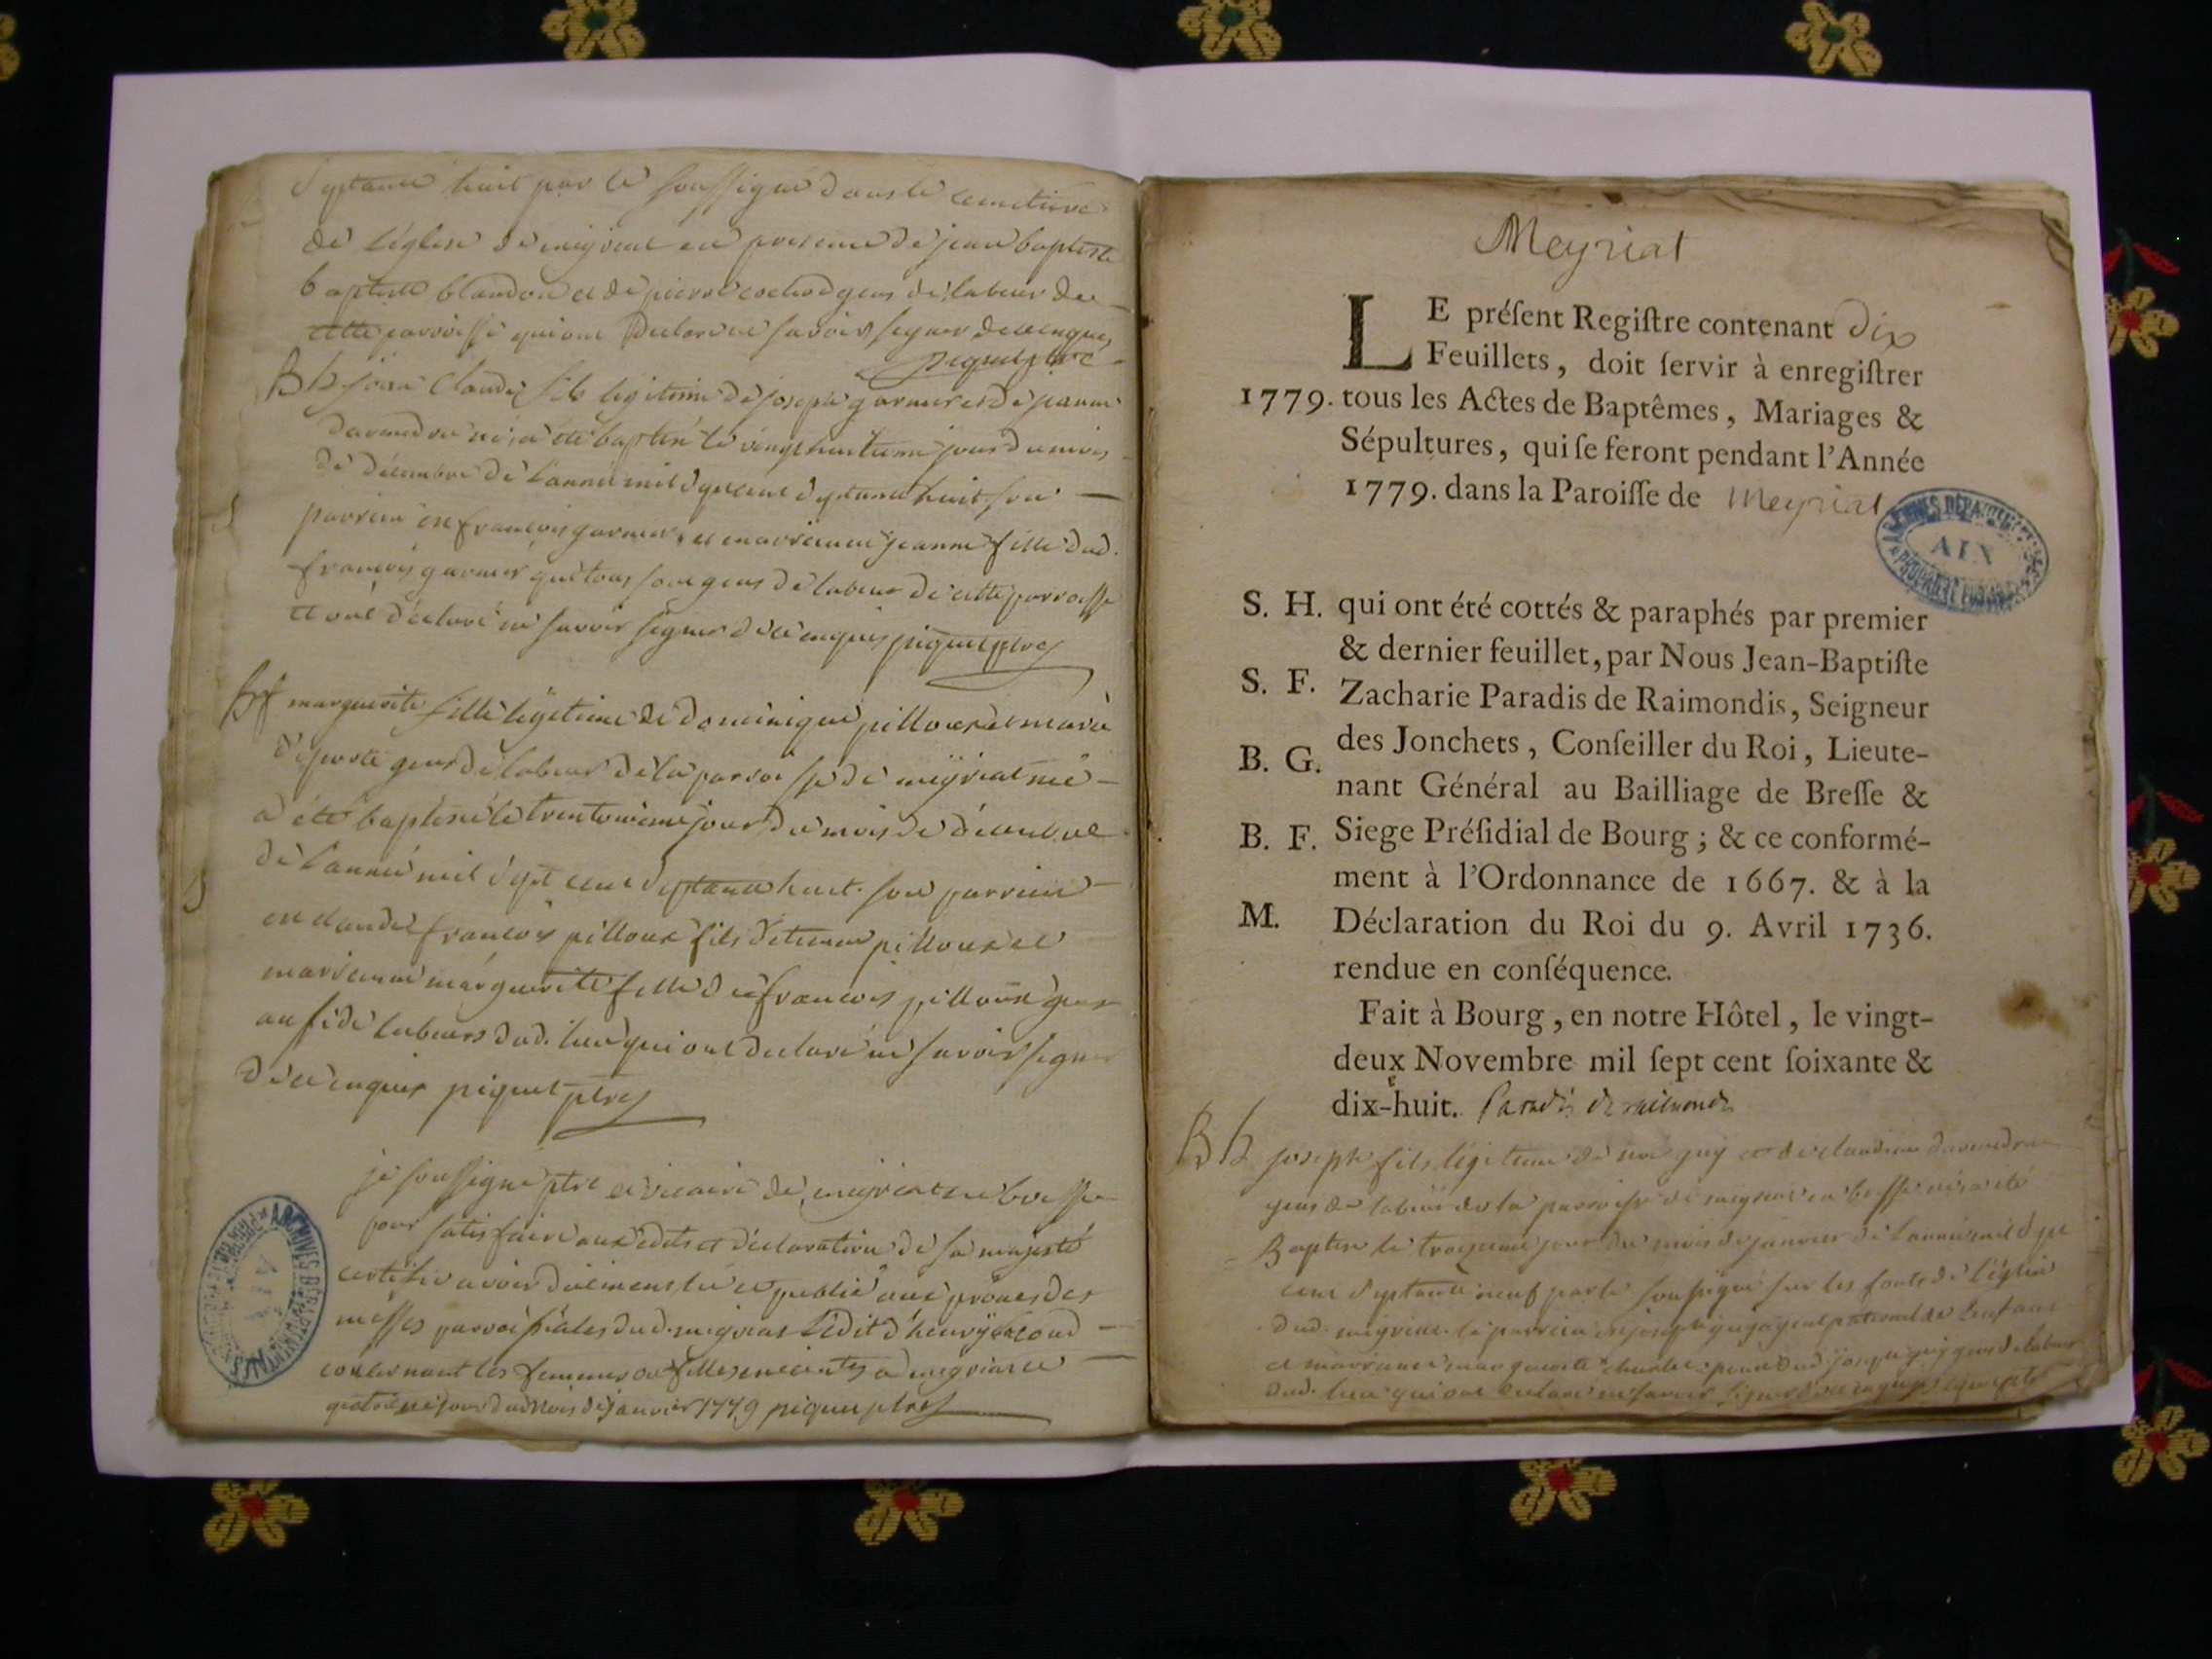 Septante huit par le soussigné dans le cemetiere
de l'église de meyriat en presence de jean baptiste
baptiste blandon et de pierre cochod gens de labeur de
cette parroisse qui ont declaré ne savoir signer de ce enquis
piquet ptre
B h jean Claude fils legitime de joseph garnier et de jeanne
davendre né, a été baptisé le vingt huitieme jour du mois
de décembre de l'année mil sept cent septante huit son
parrein est francois garnier, et marreine jeanne fille dud.
francois garnier qui tous sont gens de labeur de cette parroisse
et ont declaré ne savoir signer de ce enquis piquet ptre
B f marguerite fille légitime de dominique pilloux et marie
deporte gens de labeur de la parroisse de meÿriat née
a été baptisée le trentunieme jour du mois de décembre
de l'année mil sept cent septante huit. son parrein
est claude francois pilloux fils d'etienne pilloux et
marreine marguerite fille de francois pilloux gens
aussi de labeurs dud. lieu qui ont declaré ne savoir signer
de ce enquis piquet ptre
je soussigné ptre et vicaire de meyriat en bresse
pour satisfaire aux edits et déclaration de sa majesté
certifie avoir duement lu et publié aux prônes des
messes parroissiales dud. meyriat l'édit d'henry second
concernant les femmes ou filles enceintes a meyriat ce
jour dud. mois de janvier 1779 piquet ptre
ARCHIVES DÉPARTEMENTALES
AIN
Meyriat
LE préſent Regiſtre contenant dix
Feuillets, doit ſervir à enregiſtrer
1779. tous les Actes de Baptêmes, Mariages &
Sépultures, qui ſe feront pendant l'Année
1779. dans la Paroiſſe de Meyriat
S. H. qui ont été cottés & paraphés par premier
& dernier feuillet, par Nous Jean-Baptiſte
S. F. Zacharie Paradis de Raimondis, Seigneur
des Jonchets, Conſeiller du Roi, Lieute-
B. G. nant Général au Bailliage de Breſſe &
B. F. Siege Préſidial de Bourg; & ce conformé-
ment à l'Ordonnance de 1667. & à la
M. Déclaration du Roi du 9. Avril 1736.
rendue en conſéquence.
Fait à Bourg, en notre Hôtel, le vingt-
deux Novembre mil ſept cent ſoixante &
dix-huit. Paradis de raimondis
B h joseph fils légitime de guy et de claudine davendre
gens de labeur de la parroisse de meyriat en bresse né, a été
Baptisé le treizieme jour du mois de janvier de l'année mil sept
cent septante neuf par le soussigné sur les fonts de l'église
dud. meyriat. le parrein est joseph guy ayeul paternel de l'enfant
et marreine marguerite dud. joseph guy gens de labeur
dud. lieu qui ont declaré ne savoir signer de ce enquis piquet ptre